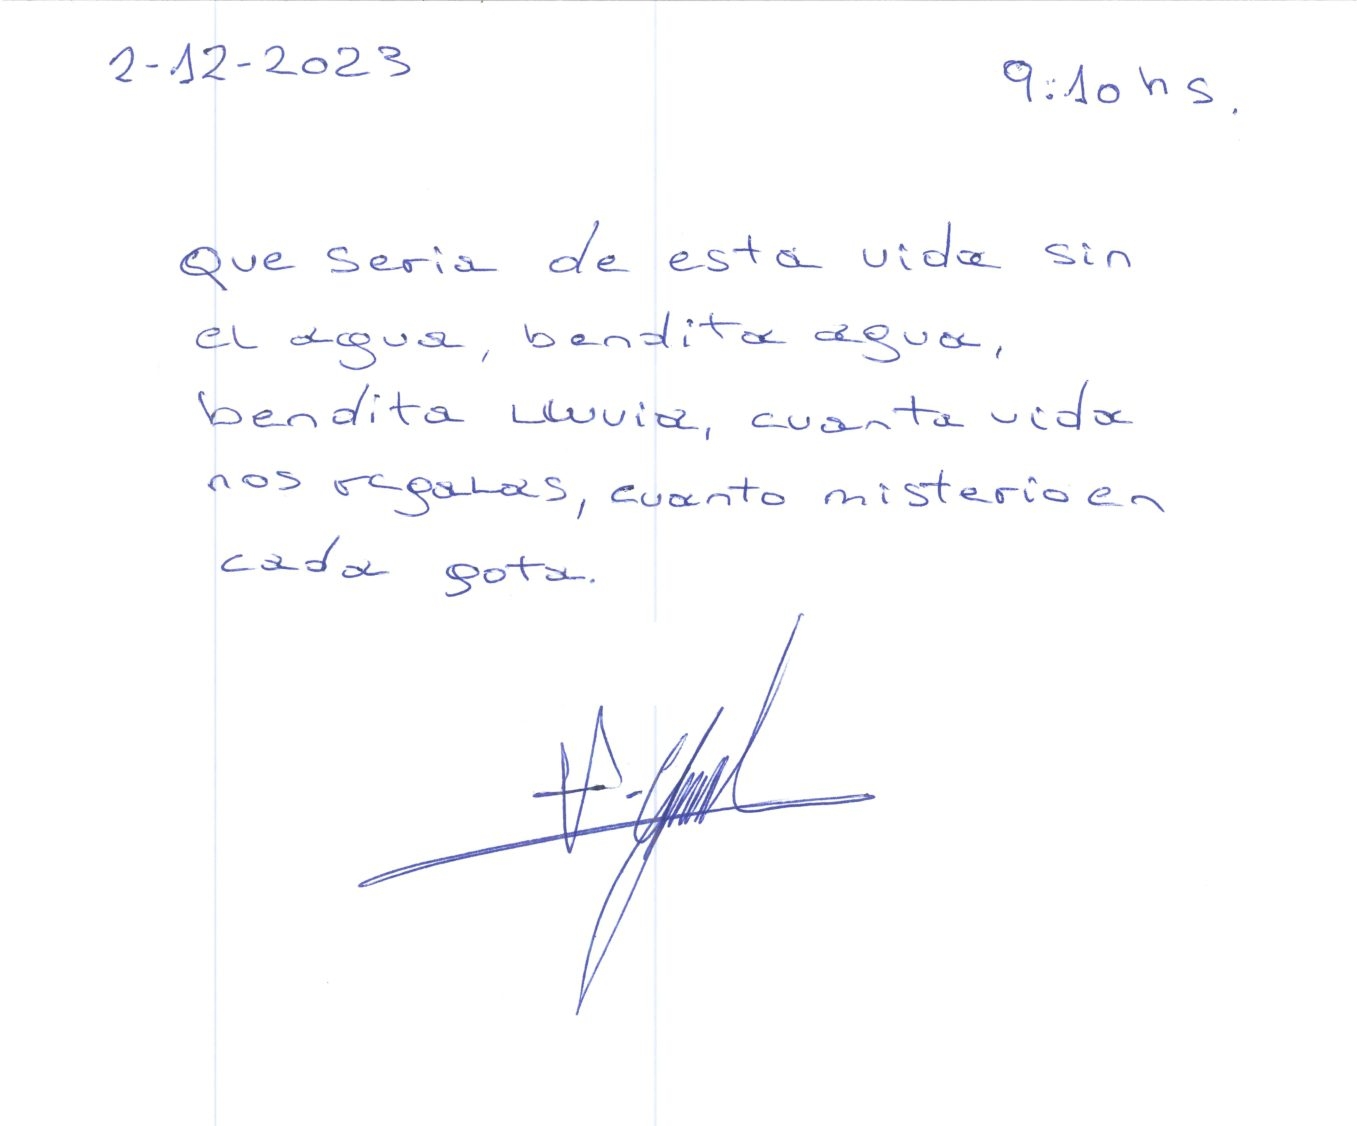 2-12-2023
9:10 hs.
Que seria de esta vida sin
el agua, bendita agua,
bendita lluvia, cuanta vida
nos regalas, cuanto misterio en
cada gota.